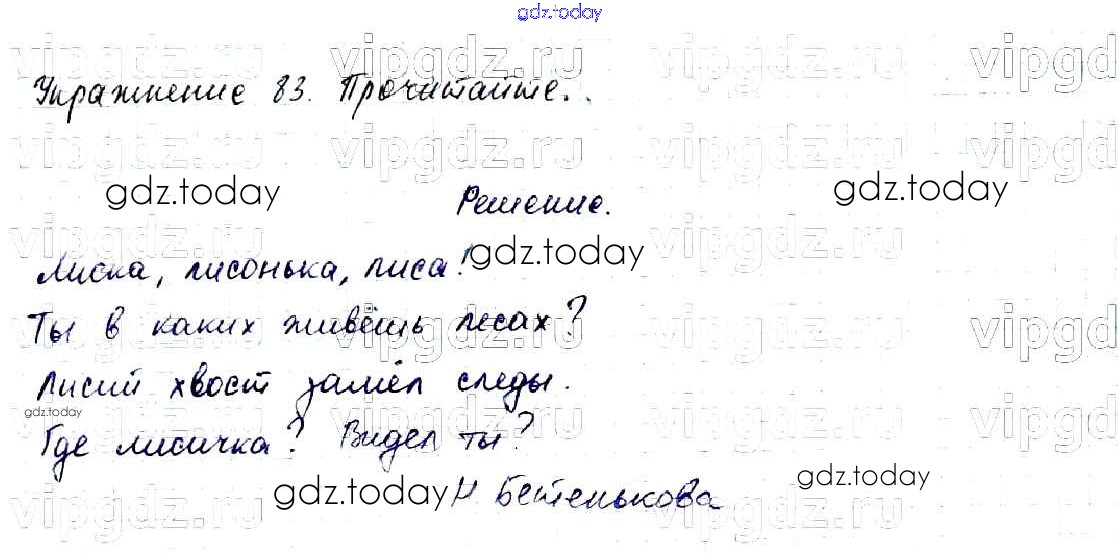 gdz.today
Упражнение 83. Прочитайте...
Решение.
Лиска, лисонька, лиса!
Ты в каких живёшь лесах?
Лисий хвост замёл следы.
Где лисичка? Видел ты?
Н. Бетенькова
vipgdz.ru vipgdz.ru vipgd
vipgdz.ru vipgdz.ru vipgd
gdz.today gdz.today
vipgdz.ru vipgdz.ru vipgd
gdz.today
vipgdz.ru vipgdz.ru vipgd
gdz.today
vipgdz.ru vipgdz.ru vipgd
gdz.today gdz.today
vipgdz.ru vipgdz.ru vipgd